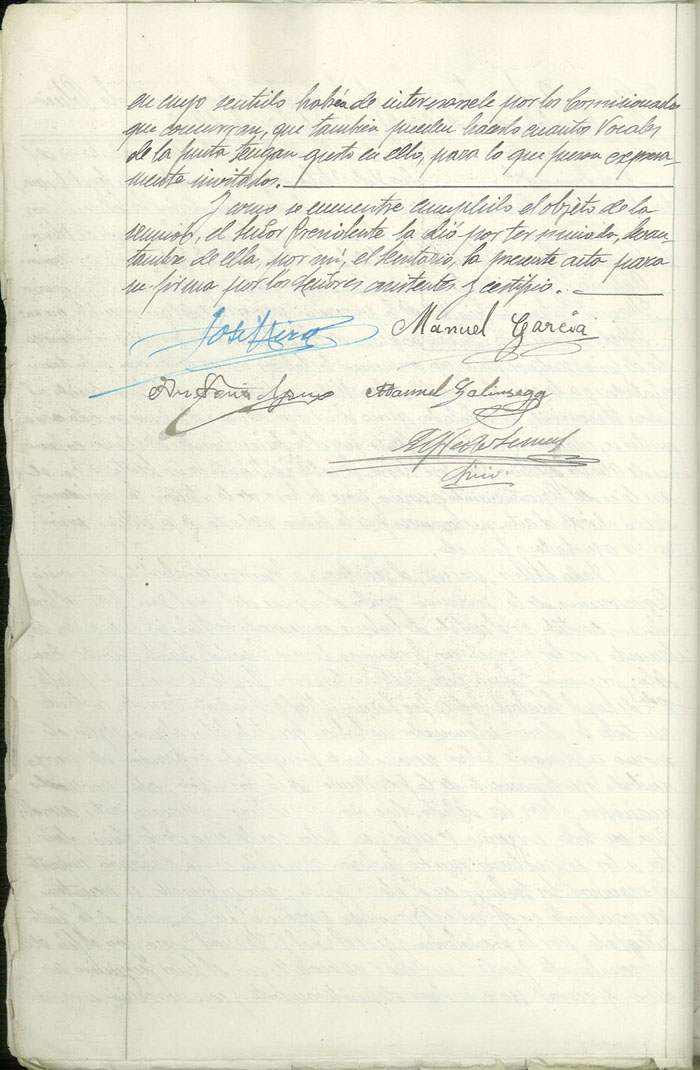 en cuyo sentido habían de interesarsele por los Comisionados
que concurran, que también pueden hacerlo cuantos Vocales
de la Junta tengan gusto en ello, para lo que fueron expresa-
mente invitados.
Y como se encuentre cumplido el objeto de la
reunión, el Señor Presidente la dió por terminada, levan-
tandose de ella, por mí, el Secretario, la presente acta para
su firma por los Señores asistentes y certifico.
José
Manuel García
Antonio
Manuel Galinsoga